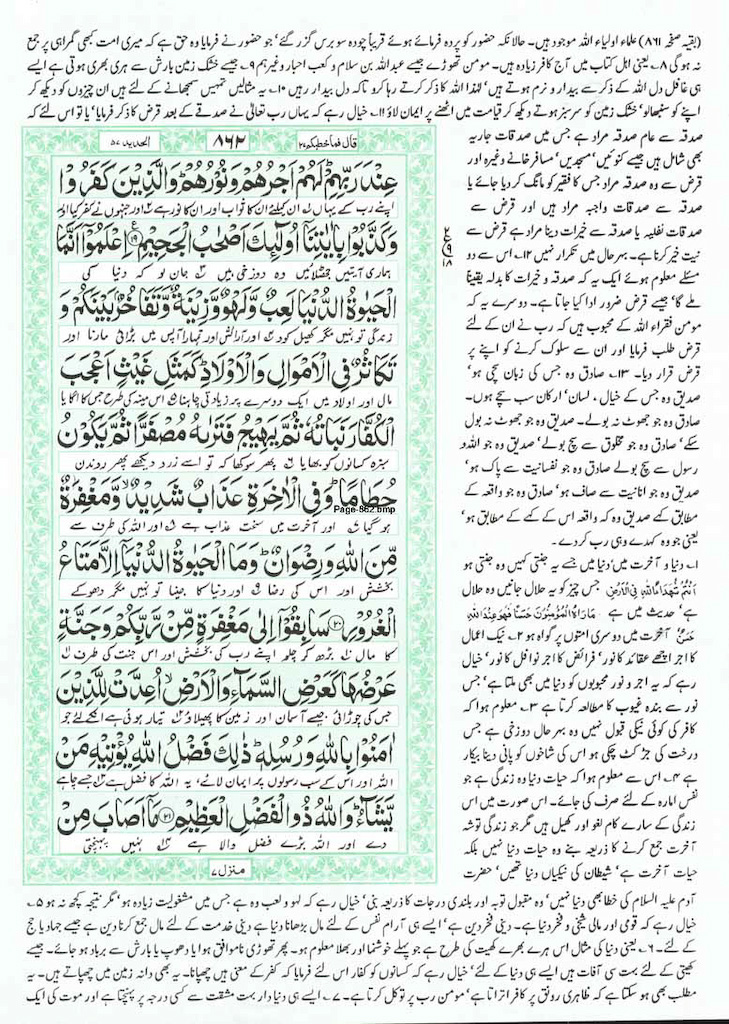 (بقیہ صفحہ ۸۶۱) علماء اولیاء اللہ موجود ہیں۔ حالانکہ حضور کو پردہ فرمائے ہوئے قریباً چودہ سو برس گزر گئے' جو حضور نے فرمایا وہ حق ہے کہ میری امت کبھی گمراہی پر جمع
نہ ہوگی ۸۔ یعنی اہل کتاب میں آج کافر زیادہ ہیں۔ مومن تھوڑے جیسے عبداللہ بن سلام و کعب احبار وغیرہم ۹۔ جیسے خشک زمین بارش سے ہری بھری ہوتی ہے ایسے
ہی غافل دل اللہ کے ذکر سے بیدار و نرم ہوتے ہیں' لہذا اللہ کا ذکر کرتے رہا کرو تاکہ دل بیدار رہیں ۱۰۔ یہ مثالیں تمہیں سمجھانے کے لئے ہیں ان چیزوں کو دیکھ کر
اپنے کو سنبھالو' خشک زمین کو سرسبز ہوتے دیکھ کر قیامت میں اٹھنے پر ایمان لاؤ ۱۱۔ خیال رہے کہ یہاں رب تعالیٰ نے صدقے کے بعد قرض کا ذکر فرمایا' یا تو اس لئے کہ
صدقہ سے عام صدقہ مراد ہے جس میں صدقات جاریہ
بھی شامل ہیں جیسے کنوئیں' مسجدیں' مسافر خانے وغیرہ اور
قرض سے وہ صدقہ مراد جس کا فقیر کو مانگ کر دیا جائے یا
صدقہ سے صدقات واجبہ مراد ہیں اور قرض سے
صدقات نفلیہ یا صدقہ سے خیرات دینا مراد ہے قرض سے
نیت خیر کرنا ہے۔ بہر حال میں تکرار نہیں ۱۲۔ اس سے دو
مسئلے معلوم ہوئے ایک یہ کہ صدقہ و خیرات کا بدلہ یقیناً
ملے گا' جیسے قرض ضرور ادا کیا جاتا ہے۔ دوسرے یہ کہ
مومن فقراء اللہ کے محبوب ہیں کہ رب نے ان کے لئے
قرض طلب فرمایا اور ان سے سلوک کرنے کو اپنے پر
قرض قرار دیا۔ ۱۳۔ صادق وہ جس کی زبان سچی ہو'
صدیق وہ جس کے خیال' لسان' ارکان سب سچے ہوں۔
صادق وہ جو جھوٹ نہ بولے۔ صدیق وہ جو جھوٹ نہ بول
سکے' صادق وہ جو مخلوق سے سچ بولے' صدیق وہ جو اللہ و
رسول سے سچ بولے صادق وہ جو نفسانیت سے پاک ہو'
صدیق وہ جو انانیت سے صاف ہو' صادق وہ جو واقعہ کے
مطابق کہے صدیق وہ کہ واقعہ اس کے کہے کے مطابق ہو'
یعنی جو وہ کہدے وہی رب کر دے۔
۱۔ دنیا و آخرت میں' دنیا میں جسے یہ جنتی کہیں وہ جنتی ہو
اَنْتُمْ شُهَدَآءُ اللهِ فِي الْاَرْضِ جس چیز کو یہ حلال جانیں وہ حلال
ہے' حدیث میں ہے مَا رَاٰهُ الْمُؤْمِنُوْنَ حَسَنًا فَهُوَ عِنْدَ اللهِ
حَسَنٌ آخرت میں دوسری امتوں پر گواہ ہو ۲۔ نیک اعمال
کا اجر اچھے عقائد کا نور' فرائض کا اجر نوافل کا نور' خیال
رہے کہ یہ اجر و نور محبوبوں کو دنیا میں بھی ملتا ہے' جس
نور سے بندہ غیوب کا مطالعہ کرتا ہے ۳۔ معلوم ہوا کہ
کافر کی کوئی نیکی قبول نہیں وہ بہر حال دوزخی ہے جس
درخت کی جڑ کٹ چکی ہو اس کی شاخوں کو پانی دینا بیکار
ہے ۴۔ اس سے معلوم ہوا کہ حیات دنیا وہ زندگی ہے جو
نفس امارہ کے لئے صرف کی جائے۔ اس صورت میں اس
زندگی کے سارے کام لغو اور کھیل ہیں مگر جو زندگی توشہ
آخرت جمع کرنے کا ذریعہ بنے وہ حیات دنیا نہیں بلکہ
حیات آخرت ہے' شیطان کی نیکیاں دنیا تھیں' حضرت
الحدید ۵۷
۸۶۲
قال فما خطبكم ۲۷
عِنْدَ رَبِّهِمْ لَهُمْ اَجْرُهُمْ وَنُوْرُهُمْ وَالَّذِيْنَ كَفَرُوْا
اپنے رب کے یہاں ان کیلئے ان کا ثواب اور ان کا نور ہے اور جنہوں نے کفر کیا اور
وَكَذَّبُوْا بِاٰيٰتِنَآ اُولٰٓئِكَ اَصْحٰبُ الْجَحِيْمِ ۱۹ اِعْلَمُوْٓا اَنَّمَا
ہماری آیتیں جھٹلائیں وہ دوزخی ہیں جان لو کہ دنیا کی
الْحَيٰوةُ الدُّنْيَا لَعِبٌ وَّلَهْوٌ وَّزِيْنَةٌ وَّتَفَاخُرٌۢ بَيْنَكُمْ وَ
زندگی تو نہیں مگر کھیل کود اور آرائش اور تمہارا آپس میں بڑائی مارنا اور
تَكَاثُرٌ فِي الْاَمْوَالِ وَالْاَوْلَادِ كَمَثَلِ غَيْثٍ اَعْجَبَ
مال اور اولاد میں ایک دوسرے پر زیادتی چاہنا اس مینہ کی طرح جس کا اگایا
الْكُفَّارَ نَبَاتُهٗ ثُمَّ يَهِيْجُ فَتَرٰىهُ مُصْفَرًّا ثُمَّ يَكُوْنُ
سبزہ کسانوں کو بھایا پھر سوکھا کہ تو اسے زرد دیکھے پھر روندن
حُطَامًا وَفِي الْاٰخِرَةِ عَذَابٌ شَدِيْدٌ وَّمَغْفِرَةٌ
Page-862.bmp
ہو گیا اور آخرت میں سخت عذاب ہے اور اللہ کی طرف سے
مِّنَ اللهِ وَرِضْوَانٌ وَمَا الْحَيٰوةُ الدُّنْيَآ اِلَّا مَتَاعُ
بخشش اور اس کی رضا اور دنیا کا جینا تو نہیں مگر دھوکے
الْغُرُوْرِ ۲۰ سَابِقُوْٓا اِلٰى مَغْفِرَةٍ مِّنْ رَّبِّكُمْ وَجَنَّةٍ
کا مال بڑھ کر چلو اپنے رب کی بخشش اور اس جنت کی طرف
عَرْضُهَا كَعَرْضِ السَّمَآءِ وَالْاَرْضِ اُعِدَّتْ لِلَّذِيْنَ
جس کی چوڑائی جیسے آسمان اور زمین کا پھیلاؤ تیار ہوئی ہے انکے لئے جو
اٰمَنُوْا بِاللهِ وَرُسُلِهٖ ذٰلِكَ فَضْلُ اللهِ يُؤْتِيْهِ مَنْ
اللہ اور اس کے سب رسولوں پر ایمان لائے یہ اللہ کا فضل ہے جسے چاہے
يَّشَآءُ وَاللهُ ذُو الْفَضْلِ الْعَظِيْمِ ۲۱ مَآ اَصَابَ مِنْ
دے اور اللہ بڑے فضل والا ہے نہیں پہنچتی
منزل ۷
آدم علیہ السلام کی خطا بھی دنیا نہیں' وہ مقبول توبہ اور بلندی درجات کا ذریعہ بنی' خیال رہے کہ لہو و لعب وہ ہے جس میں مشغولیت زیادہ ہو' مگر نتیجہ کچھ نہ ہو ۵۔
خیال رہے کہ قومی اور مالی شیخی و فخر دنیا ہے۔ دینی فخر دین ہے' ایسے ہی آرام نفس کے لئے مال بڑھانا دنیا ہے دینی خدمت کے لئے مال جمع کرنا دین ہے جیسے جہاد یا حج
کے لئے۔ ۶۔ یعنی دنیا کی مثال اس ہرے بھرے کھیت کی طرح ہے جو پہلے خوشنما اور بھلا معلوم ہو۔ پھر تھوڑی ناموافق ہوا یا دھوپ یا بارش سے برباد ہو جائے۔ جیسے
کھیتی کے لئے بہت سی آفات ہیں ایسے ہی دنیا کے لئے' خیال رہے کہ کسانوں کو کفار اس لئے فرمایا کہ کفر کے معنی ہیں چھپانا۔ یہ بھی دانہ زمین میں چھپاتے ہیں۔ یہ
مطلب بھی ہو سکتا ہے کہ ظاہری رونق پر کافر اتراتا ہے' مومن رب پر توکل کرتا ہے۔ ۷۔ ایسے ہی دنیا دار بہت مشقت سے کسی درجہ پر پہنچتا ہے اور موت کی ایک